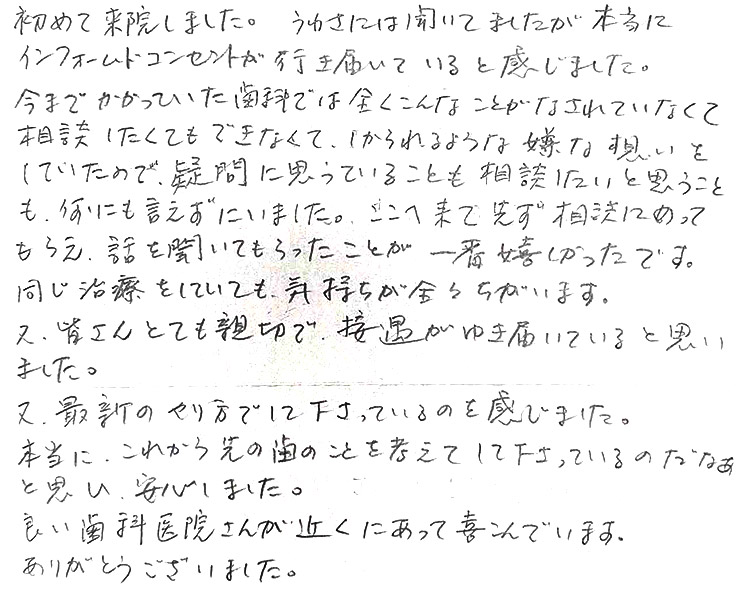 初めて来院しました。 うわさには聞いてましたが本当に
インフォームドコンセントが行き届いていると感じました。
今までかかっていた歯科では全くこんなことがなされていなくて
相談したくてもできなくて、しかられるような嫌な想いを
していたので、疑問に思っていることも相談したいと思うこと
も、何にも言えずにいました。ここへ来て先ず相談にのって
もらえ、話を聞いてもらったことが 一番嬉しかったです。
同じ治療をしていても、気持ちが全々ちがいます。
又、皆さんとても親切で、接遇がゆき届いていると思い
ました。
又、最新のやり方でして下さっているのを感じました。
本当に、これから先の歯のことを考えてして下さっているのだなぁ
と思い、安心しました。
良い歯科医院さんが近くにあって喜こんでいます。
ありがとうございました。